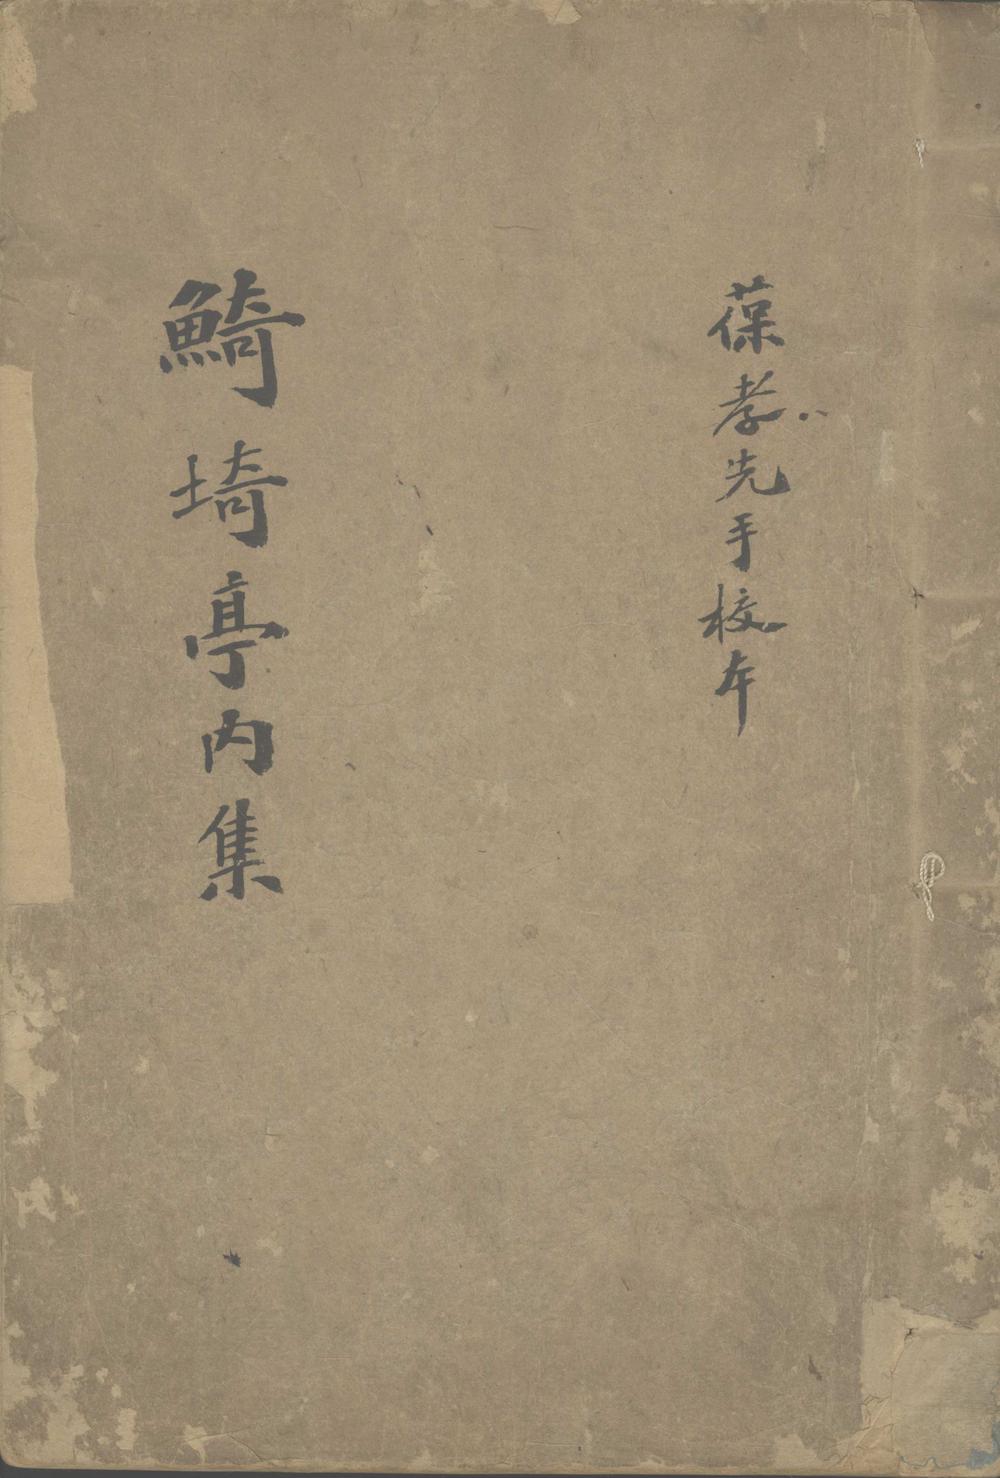 葆孝先手校本
鮚埼亭内集